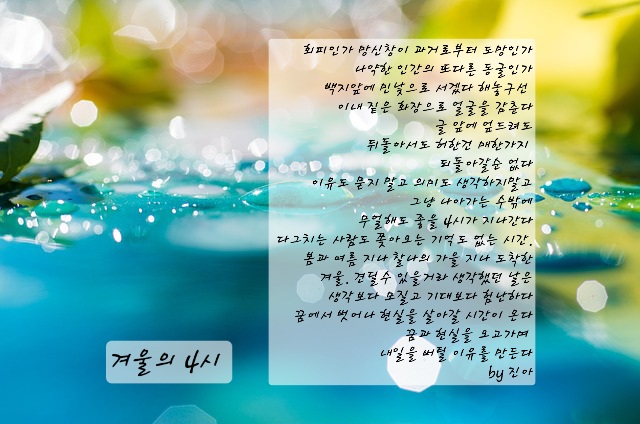 회피인가 망신창이 과거로부터 도망인가
나약한 인간의 또다른 동굴인가
백지앞에 민낯으로 서겠다 해놓구선
이내 짙은 화장으로 얼굴을 감춘다
글 앞에 엎드려도
뒤돌아서도 허한건 매한가지
되돌아갈순 없다
이유도 묻지 말고 의미도 생각하지말고
그냥 나아가는 수밖에
무얼해도 좋을 4시가 지나간다
다그치는 사람도 쫓아오는 기억도 없는 시간.
봄과 여름 지나 찰나의 가을 지나 도착한
겨울. 견딜수 있을거라 생각했던 날은
생각보다 모질고 기대보다 험난하다
꿈에서 벗어나 현실을 살아갈 시간이 온다
꿈과 현실을 오고가며
내일을 버틸 이유를 만든다
by 진아
겨울의 4시